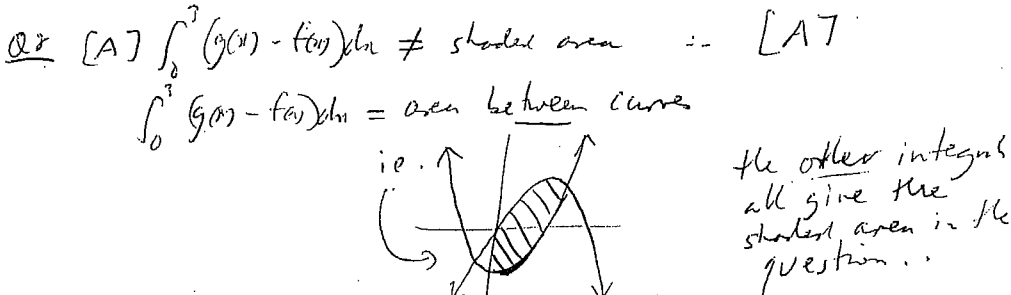 Q8 [A] ∫₀³ (g(x) - f(x))dx ≠ shaded area ∴ [A]
∫₀³ (g(x) - f(x))dx = area between curves
ie.
the other integrals
all give the
shaded area in the
question..